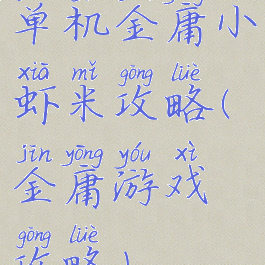 单机金庸小
xiā mǐ gōng lüè
虾米攻略(
jīn yōng yóu xì
金庸游戏
gōng lüè
攻略)